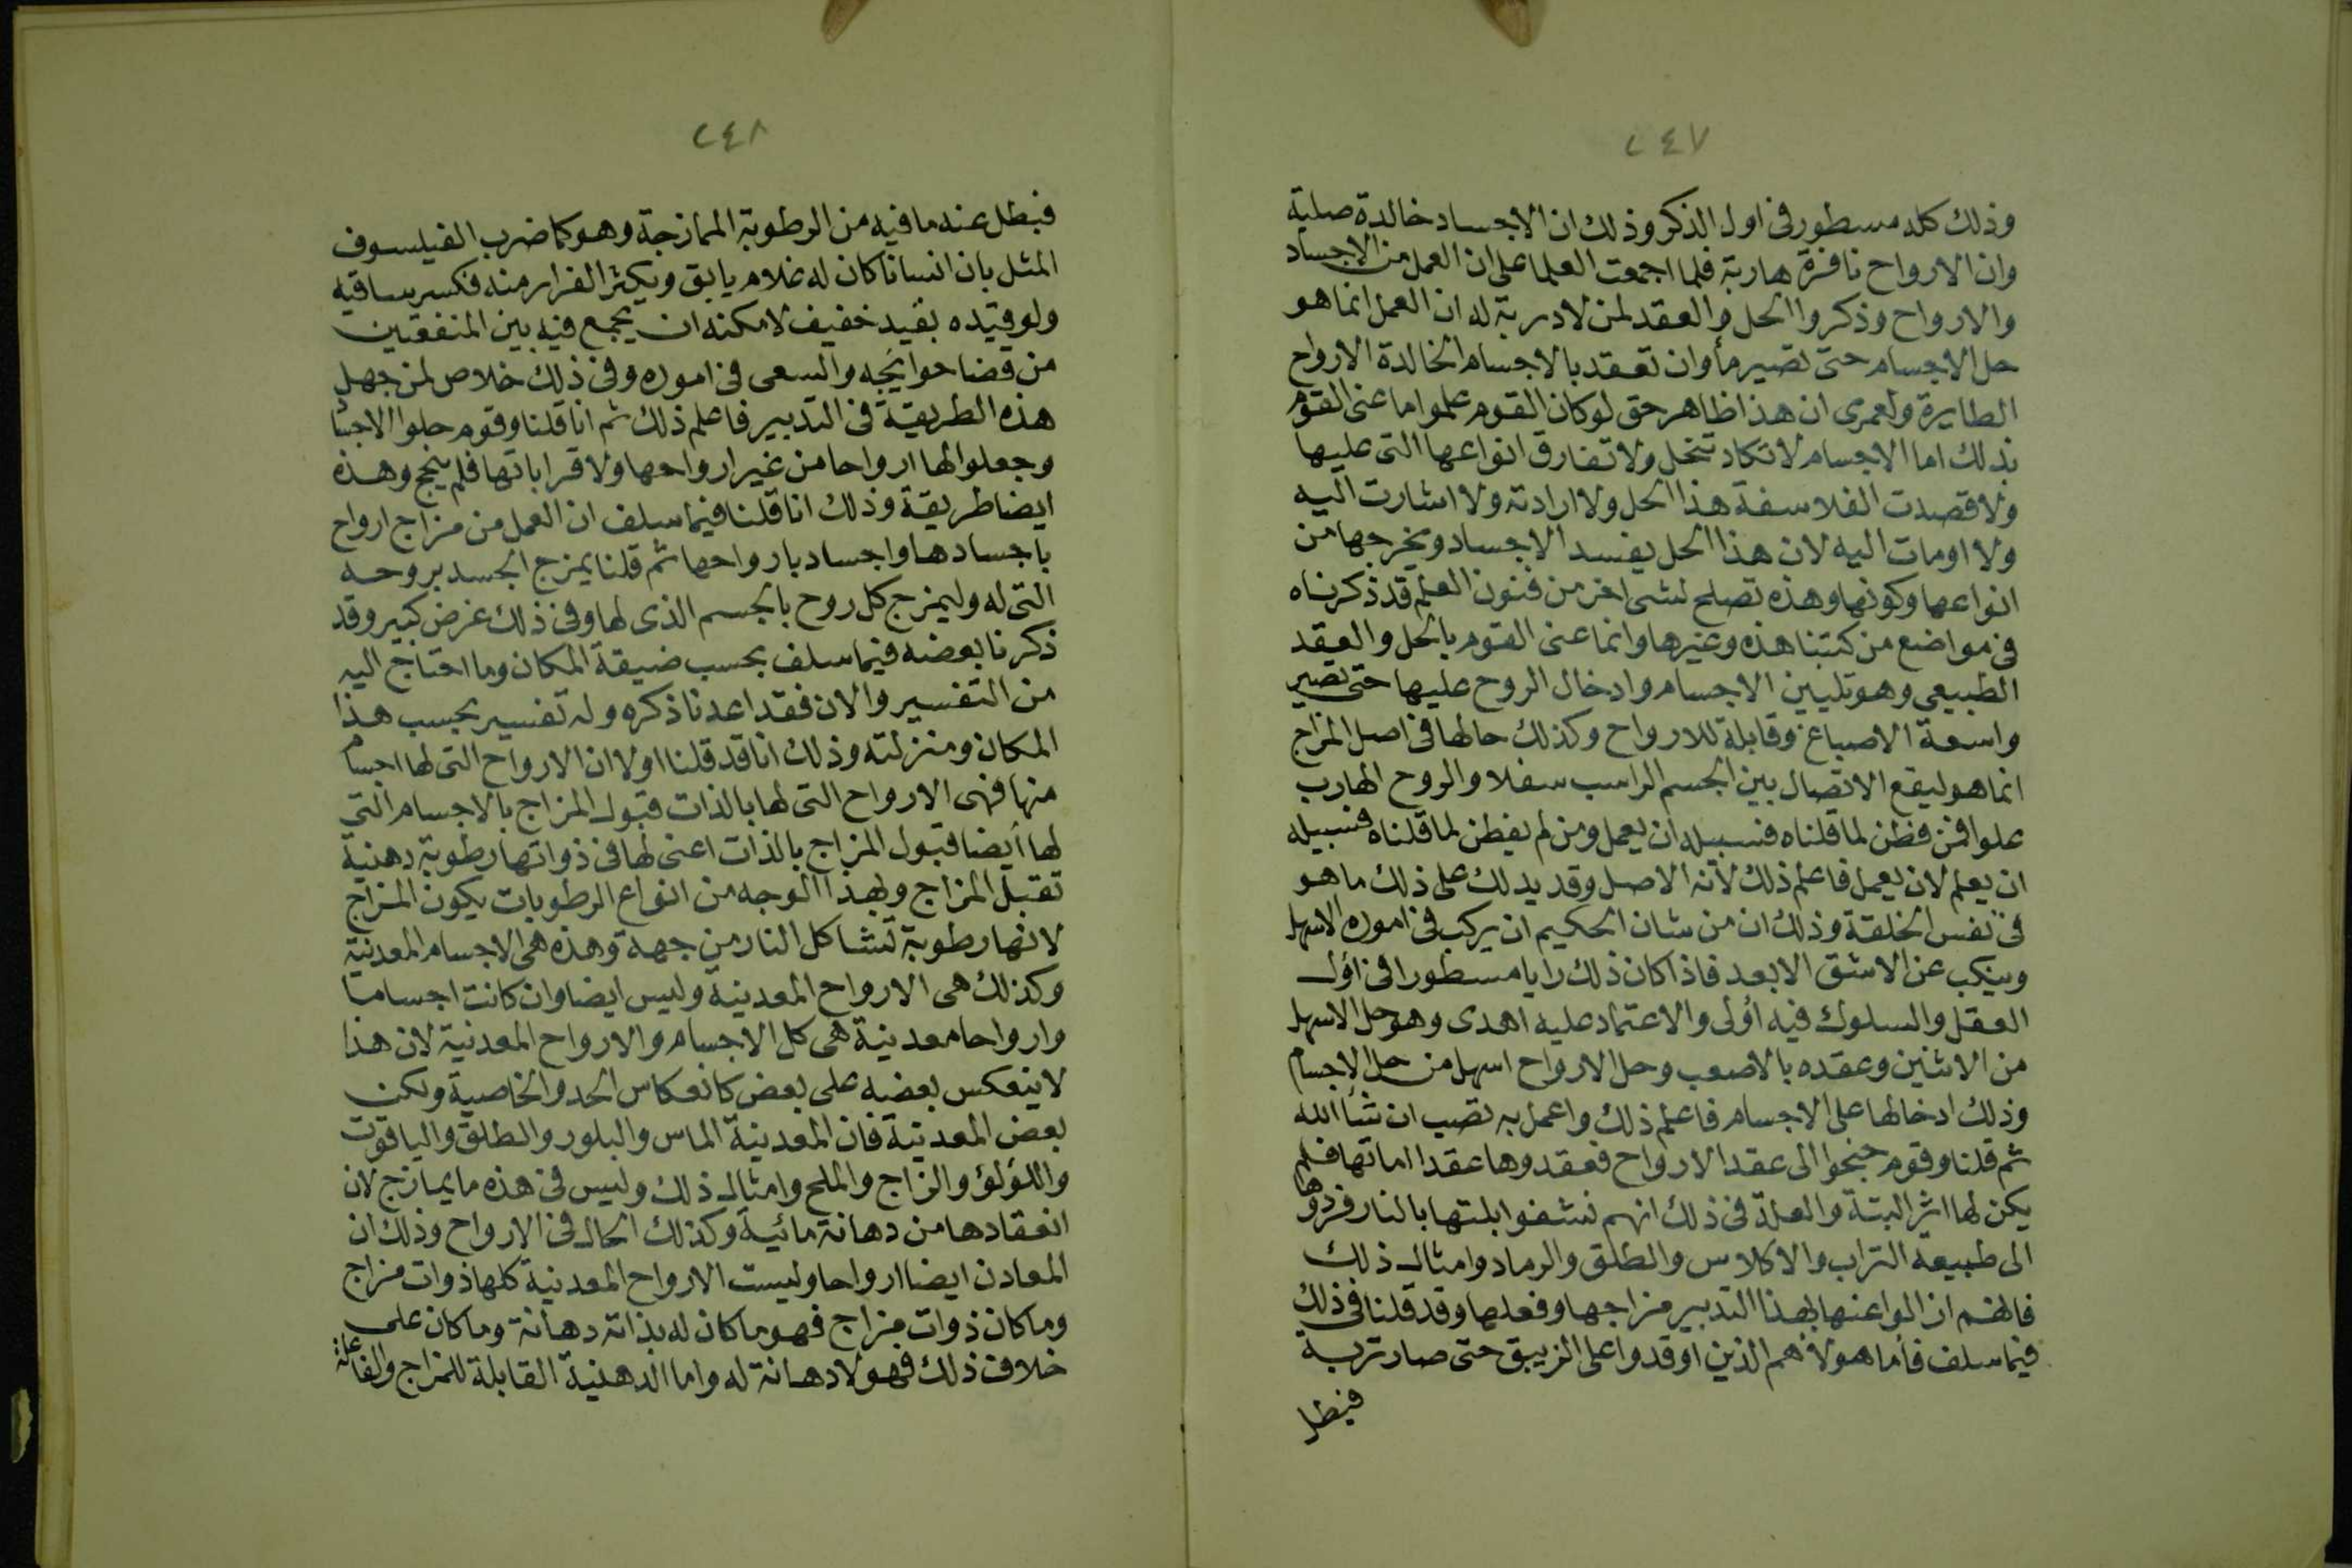 ٢٤٧
وذلك كله مسطور فى اول الذكر وذلك ان الاجساد خالدة صلبة
وان الارواح نافرة هاربة فلما اجمعت العلما على ان العمل من الاجساد
والارواح وذكروا الحل والعقد لمن لا دربة له ان العمل انما هو
حل الاجسام حتى تصير مأ وان تعقد بالاجسام الخالدة الارواح
الطايرة ولعمرى ان هذا ظاهر حق لو كان القوم علموا ما عنى القوم
بذلك اما الاجسام لا تكاد تنحل ولا تفارق انواعها التى عليها
ولا قصدت الفلاسفة هذا الحل ولا ارادته ولا اشارت اليه
ولا اومات اليه لان هذا الحل يفسد الاجساد ويخرجها من
انواعها وكونها وهذه تصلح لشى اخر من فنون العلم قد ذكرناه
فى مواضع من كتبنا هذه وغيرها وانما عنى القوم بالحل والعقد
الطبيعى وهو تليين الاجسام وادخال الروح عليها حتى تصير
واسعة الاصباغ وقابلة للارواح وكذلك حالها فى اصل المزاج
انما هو ليقع الاتصال بين الجسم الراسب سفلا والروح الهارب
علوا فمن فطن لما قلناه فسبيله ان يعمل ومن لم يفطن لما قلناه فسبيله
ان يعلم لان يعمل فاعلم ذلك لأنه الاصل وقد يدلك على ذلك ما هو
فى نفس الخلقة وذلك ان من شان الحكيم ان يركب فى اموره الاسهل
وينكب عن الاشق الابعد فاذا كان ذلك رايا مسطورا فى اول
العقل والسلوك فيه أولى والاعتماد عليه اهدى وهو حل الاسهل
من الاثنين وعقده بالاصعب وحل الارواح اسهل من حل الاجسام
وذلك ادخالها على الاجسام فاعلم ذلك واعمل به تصب ان شأ الله
ثم قلنا وقوم جنحوا الى عقد الارواح فعقدوها عقدا اماتها فلم
يكن لها اثر البتة والعلة فى ذلك انهم نشفوا بلتها بالنار فردوها
الى طبيعة التراب والاكلاس والطلق والرماد وامثال ذلك
فانهم ازالوا عنها بهذا التدبير مزاجها وفعلها وقد قلنا فى ذلك
فيما سلف فأما هولأ هم الذين اوقدوا على الزيبق حتى صار تربة
فبطل
٢٤٨
فبطل عنه ما فيه من الرطوبة الممازجة وهو كما ضرب الفيلسوف
المثل بان انسانا كان له غلام يابق ويكثر الفرار منه فكسر ساقيه
ولو قيده بقيد خفيف لامكنه ان يجمع فيه بين المنفعتين
من قضا حوايجه والسعى فى اموره وفى ذلك خلاص لمن جهل
هذه الطريقة فى التدبير فاعلم ذلك ثم انا قلنا وقوم حلوا الاجسا
وجعلوا لها ارواحا من غير ارواحها ولا قراباتها فلم ينجح وهذه
ايضا طريقة وذلك انا قلنا فيما سلف ان العمل من مزاج ارواح
باجسادها واجساد بارواحها ثم قلنا يمزج الجسد بروحه
التى له وليمزج كل روح بالجسم الذى لها وفى ذلك غرض كبير وقد
ذكرنا بعضه فيما سلف بحسب ضيقة المكان وما احتاج اليه
من التفسير والان فقد اعدنا ذكره وله تفسير بحسب هذا
المكان ومنزلته وذلك انا قد قلنا اولا ان الارواح التى لها اجسام
منها فهى الارواح التى لها بالذات قبول المزاج بالاجسام التى
لها أيضا قبول المزاج بالذات اعنى لها فى ذواتها رطوبة دهنية
تقبل المزاج وبهذا الوجه من انواع الرطوبات يكون المزاج
لانها رطوبة تشاكل النار من جهة وهذه هى الاجسام المعدنية
وكذلك هى الارواح المعدنية وليس ايضا وان كانت اجساما
وارواحا معدنية هى كل الاجسام والارواح المعدنية لان هذا
لا ينعكس بعضه على بعض كانعكاس الحد والخاصية ولكن
بعض المعدنية فان المعدنية الماس والبلور والطلق والياقوت
واللؤلؤ والزاج والملح وامثال ذلك وليس فى هذه ما يمازج لان
انعقادها من دهانة مائية وكذلك الحال فى الارواح وذلك ان
المعادن ايضا ارواحا وليست الارواح المعدنية كلها ذوات مزاج
وما كان ذوات مزاج فهو ما كان له بذاته دهانة وما كان على
خلاف ذلك فهو لا دهانة له واما الدهنية القابلة للمزاج والفاعلة